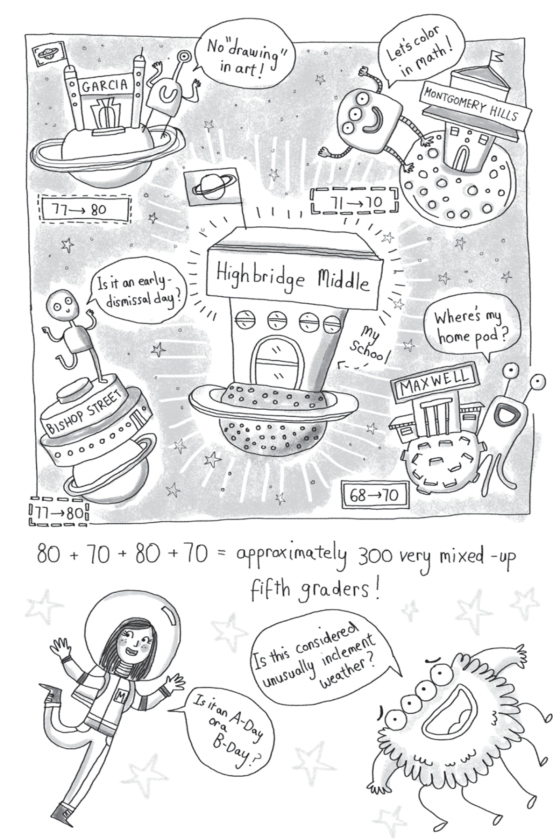 No "drawing"
in art!
Let's color
in math!
GARCIA
MONTGOMERY HILLS
77→80
71→70
Highbridge Middle
Is it an early-
dismissal day?
My
School
Where's my
home pod?
BISHOP STREET
MAXWELL
77→80
68→70
80 + 70 + 80 + 70 = approximately 300 very mixed-up
fifth graders!
Is this considered
unusually inclement
weather?
M
Is it an A-Day
or a
B-Day?